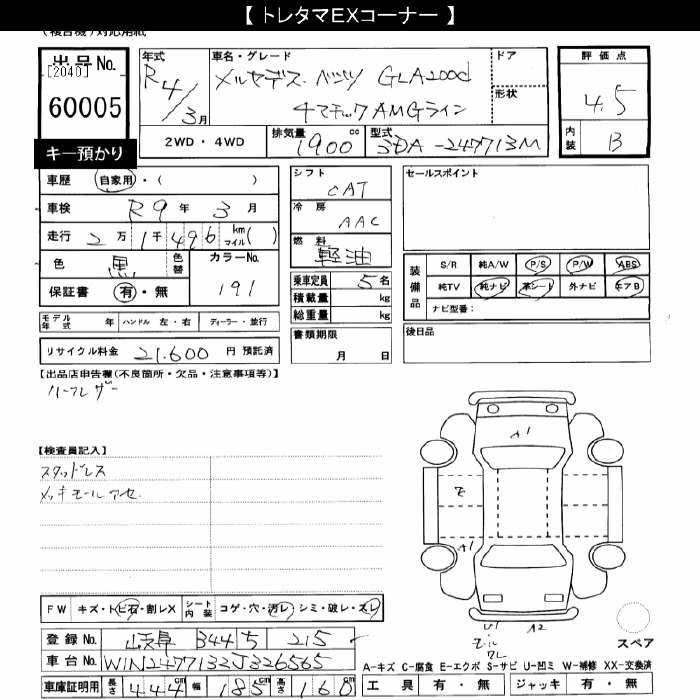 【 トレタマEXコーナー 】
(複合機)対応用紙
出品No.
[2040]
60005
キー預かり
年式
R4/3月
車名・グレード
メルセデス・ベンツ GLA200d
4マチック AMGライン
ドア
形状
2WD・4WD
排気量 1900 cc
型式 3DA-247713M
評価点
4.5
内装 B
車歴 自家用・( )
車検 R9年 3月
走行 2万1千496 km マイル( )
色 黒 色替
カラーNo. 191
保証書 有・無
モデル年式 年 ハンドル 左・右 ディーラー・並行
リサイクル料金 21.600 円 預託済
シフト CAT
冷房 AAC
燃料 軽油
乗車定員 5名
積載量 kg
総重量 kg
書類期限
月 日
セールスポイント
装備品
S/R 純A/W P/S P/W ABS
純TV 純ナビ 革シート 外ナビ エアB
ナビ型番:
後日品
【出品店申告欄(不良箇所・欠品・注意事項等)】
ハーフレザー
【検査員記入】
スタッドレス
メッキモール
A1
A1
U1 A2
モール
スペア
FW キズ・トビ石・割レX シート内装 コゲ・穴・汚レ・シミ・破レ・スレ
登録No. 岐阜 344 ち 215
車台No. W1N2477132J326565
車庫証明用 長さ 444cm 幅 183cm 高さ 160cm
A-キズ C-腐食 E-エクボ S-サビ U-凹ミ W-補修 XX-交換済
工具 有・無 ジャッキ 有・無